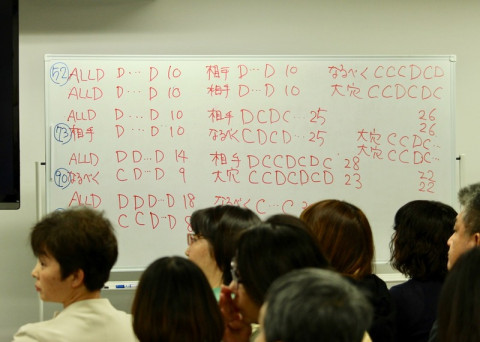 52 ALLD D…D 10 相手 D…D 10 なるべく CCCDCD
ALLD D…D 10 相手 D…D 10 大穴 CCDCDC
ALLD D…D 10 相手 DCDC…25 26
73 相手 D…D 10 なるべく CDCD…25 26
大穴 CCDC…
大穴 CCDC…
ALLD DD…D 14 相手 DCCDCDC 28 22
90 なるべく CC…D 9 大穴 CCDCDCD 23 22
ALLD DDD…D 18 なるべく C…C
CCD…D